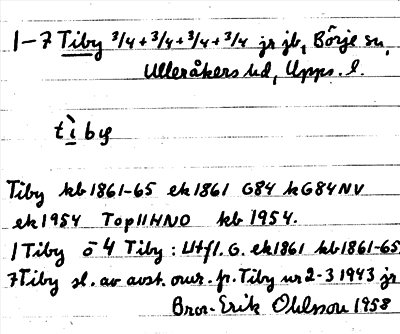 1–7 Tiby 3/4+3/4+3/4+3/4 jr jb, Börje sn,
Ulleråkers hd, Upps. l.
tìby
Tiby kb 1861–65 ek 1861 G84 kG84NV
ek 1954 Top11HNO kb 1954.
1 Tiby ö 4 Tiby: Utfl. G. ek 1861 kb 1861–65
7 Tiby sl. av avst. omr. fr. Tiby nr 2–3 1943 jr
Bror-Erik Ohlsson 1958